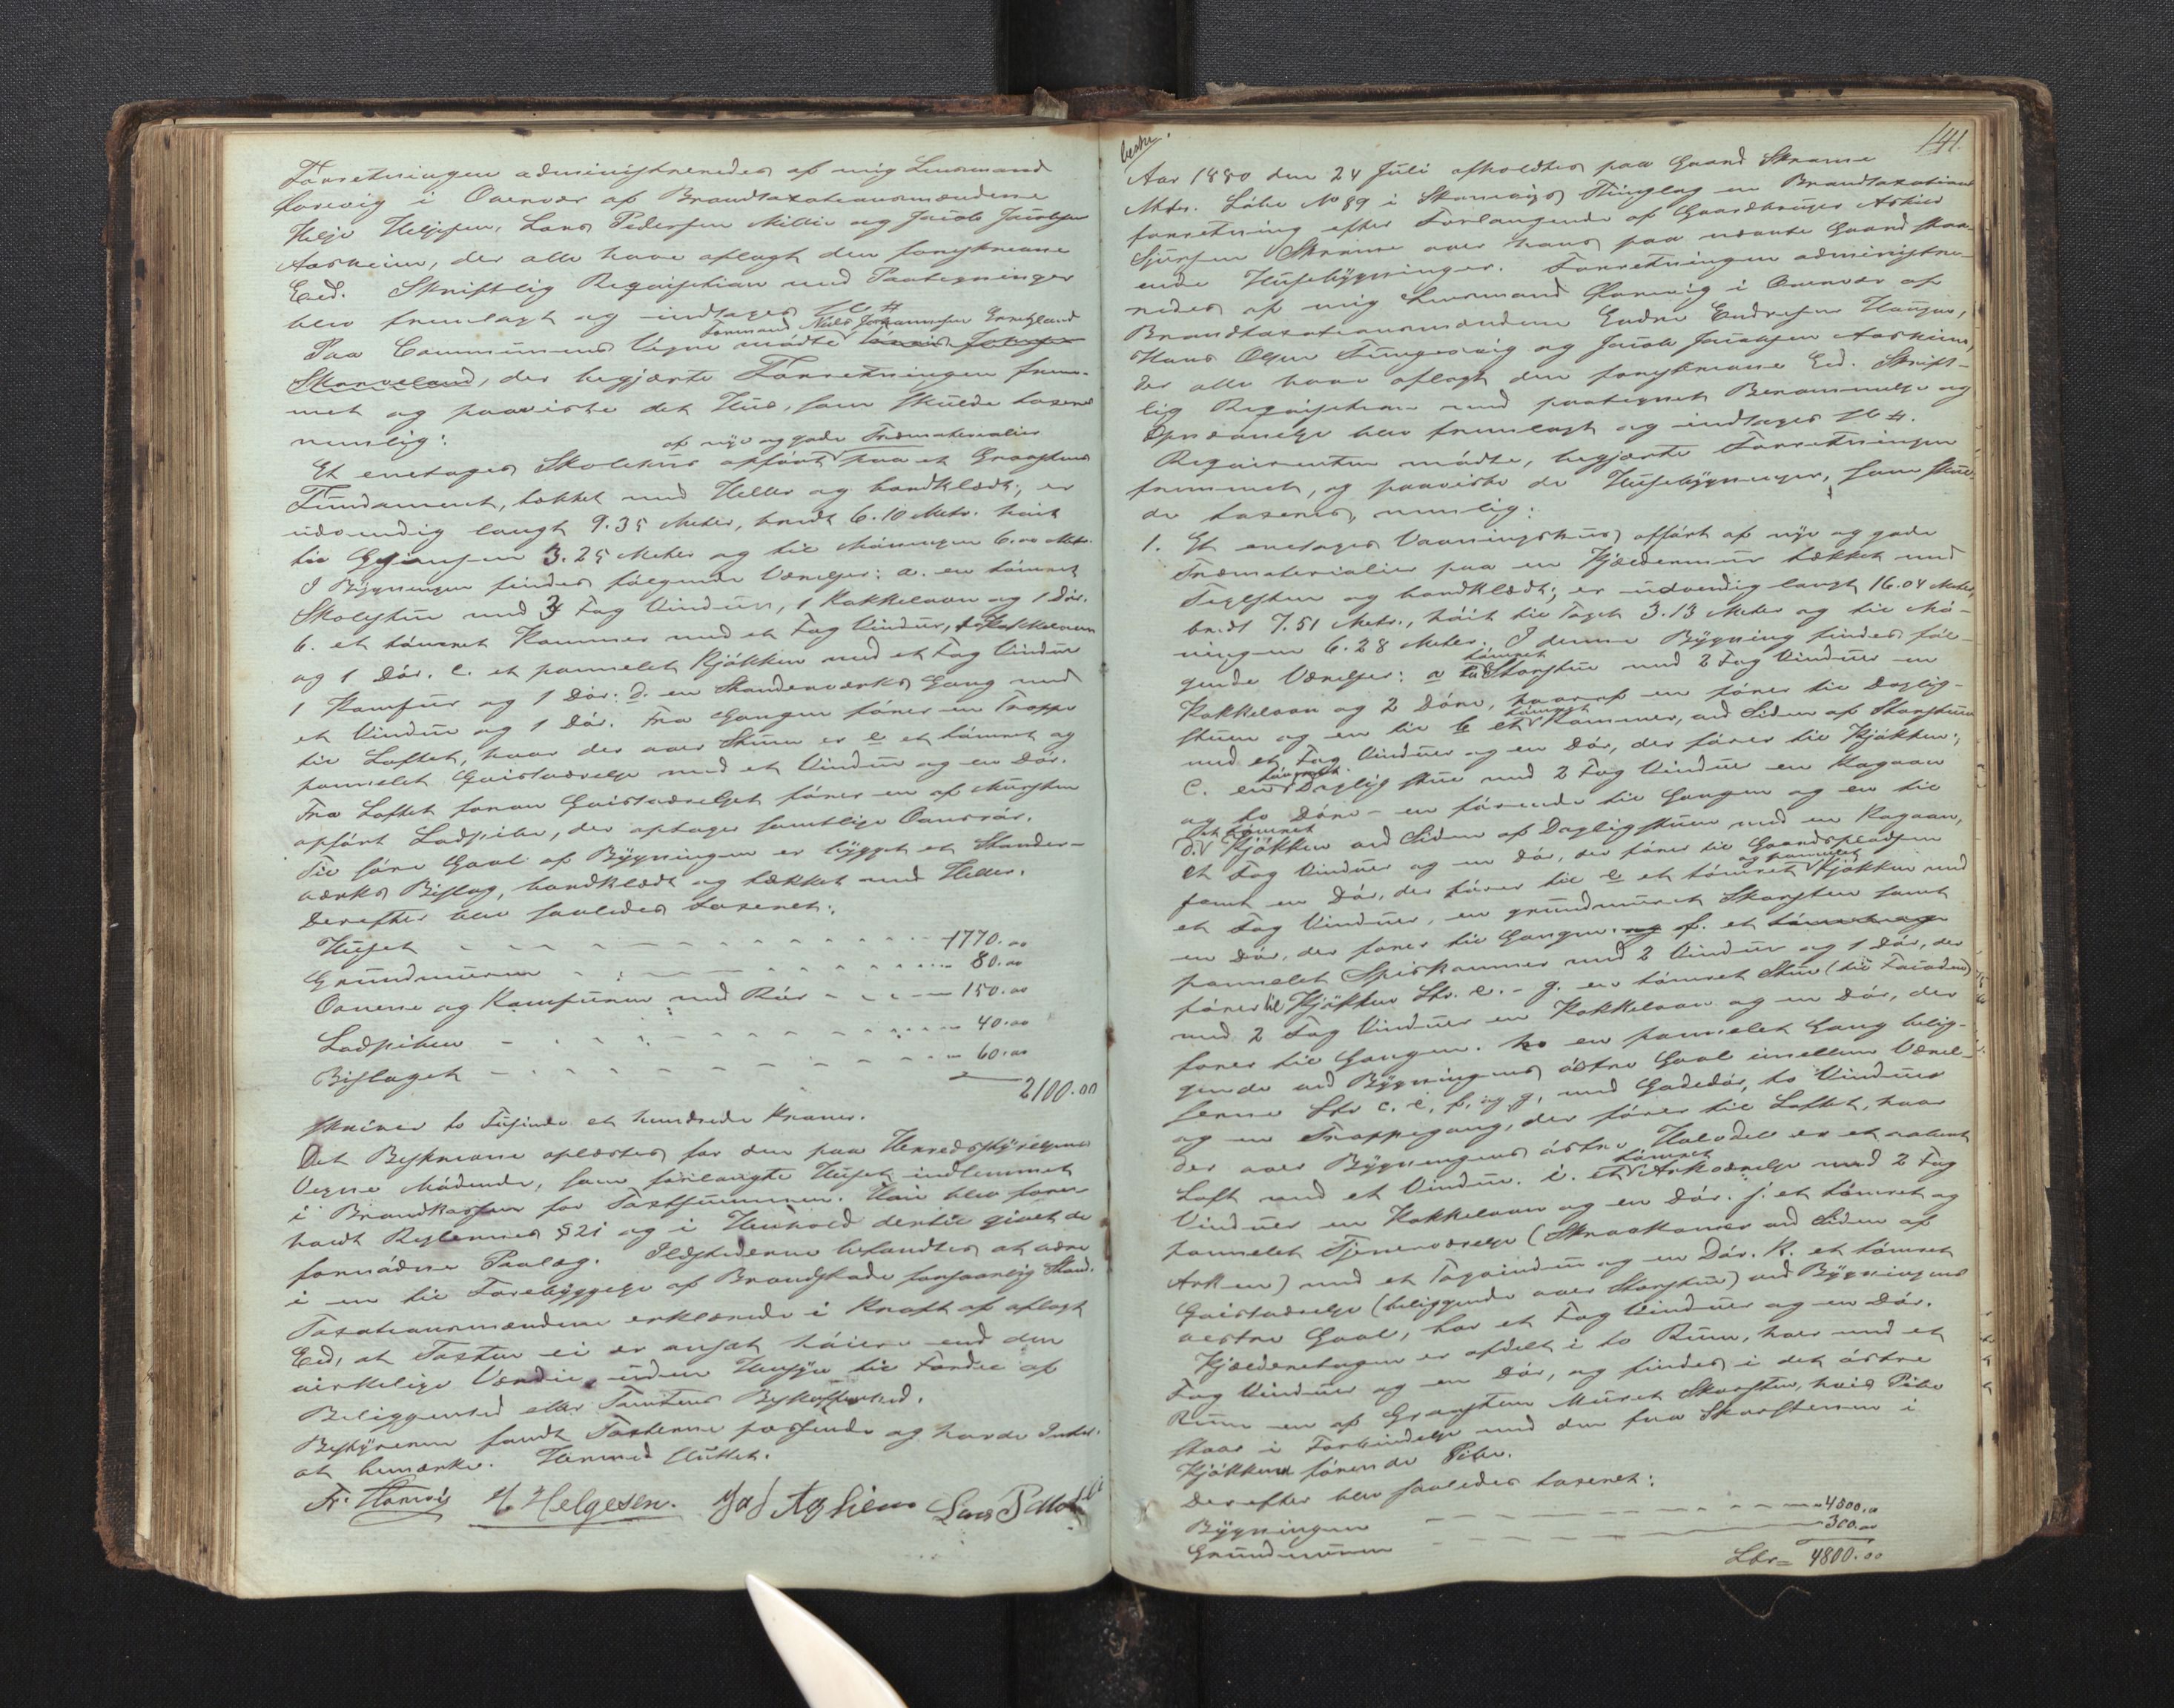 Forretningen administreredes af mig Lensmand
i Overvær af Brandtaxationsmændene
Helje Heljesen, Lars Pedersen Milde og Jacob Jacobsen
Aasheim, der alle have aflagt den foreskrevne
Eed. Skriftlig Reqvisition med Paategninger
blev fremlagt og indtages
Formand Niels Johannesen
Paa Communens Vegne mødte
Skaaneland, der begjærte Forretningen frem-
met og paaviste det Huus, som skulde taxeres
nemlig:
af nye og gode Træmaterialier
Et enetages Skolehuus opført paa et Graastens
Fundament, tækket med Heller og bordklædt; er
udvendig langt 9.35 Meter, bredt 6.10 Metr. høit
til Gesimsen 3.25 Meter og til Mønningen 6.00 Metr.
I Bygningen findes følgende Værelser: a. en tømret
Skolestue med 3 Fag Vinduer, 1 Kakkelovn og 1 Dør.
b. et tømret Kammer med et Fag Vinduer, 1 Kakkelovn
og 1 Dør. c. et pannelet Kjøkken med et Fag Vinduer
1 Komfur og 1 Dør: d. en Standerværks Gang med
et Vindue og 1 Dør. Fra Gangen fører en Trappe
til Loftet, hvor der over Stuen er e et tømret og
pannelet Qvistværelse med et Vindue og en Dør.
Fra Loftet foran Qvistværelset fører en af Mursten
opført Ladpibe, der optager samtlige Ovnsrør.
Til søre Gavl af Bygningen er bygget et Stander-
værks Bislag, bordklædt og tækket med Heller.
Derefter blev saaledes taxeret:
Huset 1770.00
Grundmuren 80.00
Ovnene og Komfuren med Rør 150.00
Ladpiben 40.00
Bislaget 60.00
2100.00
skriver to Tusinde et hundrede Kroner.
Det Beskrevne oplæstes for den paa Herredsstyrelsens
Vegne Mødende, som forlangte Huset indlemmet
i Brandkassen for Taxtsummen. Han blev fore-
holdt Reglernes § 21 og i Henhold dertil givet de
fornødne Paalæg. Ildstederne befandtes at være
i en til Forebyggelse af Brandskade forsvarlig Stand.
Taxationsmændene erklærede i Kraft af aflagt
Eed, at Taxten ei er ansat høiere end den
virkelige Værdie, uden Hensyn til Fordel af
Beliggenhed eller Tomtens Beskaffenhed.
Bestyreren fandt Taxterne passende og havde Intet
at bemærke. Hermed sluttet.
H Helgesen. Lars P
141.
Aar 1880 den 24 Juli afholdtes paa Gaard Skromme
Matr. Løbe No 89 i Skonevigs Thinglag en Brandtaxations
forretning efter Forlangende af Gaardbruger
Sjursen Skromme over hans paa nævnte Gaard staa-
ende Husebygninger. Forretningen administre-
redes af mig Lensmand i Overvær af
Brandtaxationsmændene Endre Endresen Haugen,
Hans Olsen Tungesvig og Jacob Jacobsen Aasheim,
der alle have aflagt den foreskrevne Eed. Skrift-
lig Reqvisition med paategnet Berammelse og
Opnævnelse blev fremlagt og indtages
Reqvirenten mødte, begjærte Forretningen
fremmet, og paaviste de Husebygninger, som skul-
de taxeres, nemlig:
1. Et enetages Vaaningshuus opført af nye og gode
Træmaterialier paa en Kjældermuur tækket med
Teglsten og bordklædt; er udvendig langt 16.04 Meter,
bredt 7.51 Metr., høit til Taget 3.13 Meter og til Mø-
ningen 6.28 Meter. I denne Bygning findes føl-
tømret
gende Værelser: a en Storstue med 2 Fag Vinduer en
Kakkelovn og 2 Døre, hvoraf en fører til Daglig-
tømret
stuen og en til b et Kammer, ved Siden af Storstuen
med et Fag Vinduer og en Dør, der fører til Kjøkken;
tømret
c. en Daglig stue med 2 Fag Vinduer en Kogovn
og to Døre – en førende til Gangen og en til
et tømret
d. Kjøkken ved Siden af Dagligstuen med en Kogovn,
et Fag Vinduer og en Dør, der fører til Gaardspladsen
og pannelet
samt en Dør, der fører til e et tømret Kjøkken med
et Fag Vinduer, en grundmuret Skorsten samt
en Dør, der fører til Gangen. og f. et tømret og
pannelet Spiskammer med 2 Vinduer og 1 Dør, der
fører til Kjøkken Ltr. e. – g. en tømret Stue (til Facaden)
med 2 Fag Vinduer en Kakkelovn og en Dør, der
fører til Gangen. h. en pannelet Gang belig-
gende ved Bygningens østre Gavl imellem Værel-
serne Ltr c. e. f. og g. med Gadedør, to Vinduer
og en Trappegang, der fører til Loftet, hvor
der over Bygningens østre Halvdel er et aabent
tømret
Loft med et Vindue. i. et Arkværelse med 2 Fag
Vinduer en Kakkelovn og en Dør. j. et tømret og
pannelet Tjenerværelse (Skraakammer ved Siden af
Arken) med et Tagvindue og en Dør. k. et tømret
Qvistværelse (beliggende over Storstuen) ved Bygningens
vestre Gavl, har et Fag Vinduer og en Dør.
Kjælderetagen er afdelt i to Rum, hver med et
Fag Vinduer og en Dør, og findes i det østre
Rum en af Graasten Muret Skorsten, hvis Pibe
staar i Forbindelse med den fra Skorstenen i
Kjøkkenet førende Pibe.
Derefter blev saaledes taxeret:
Bygningen 4500.00
Grundmuren 300.00
Lbr = 4800.00